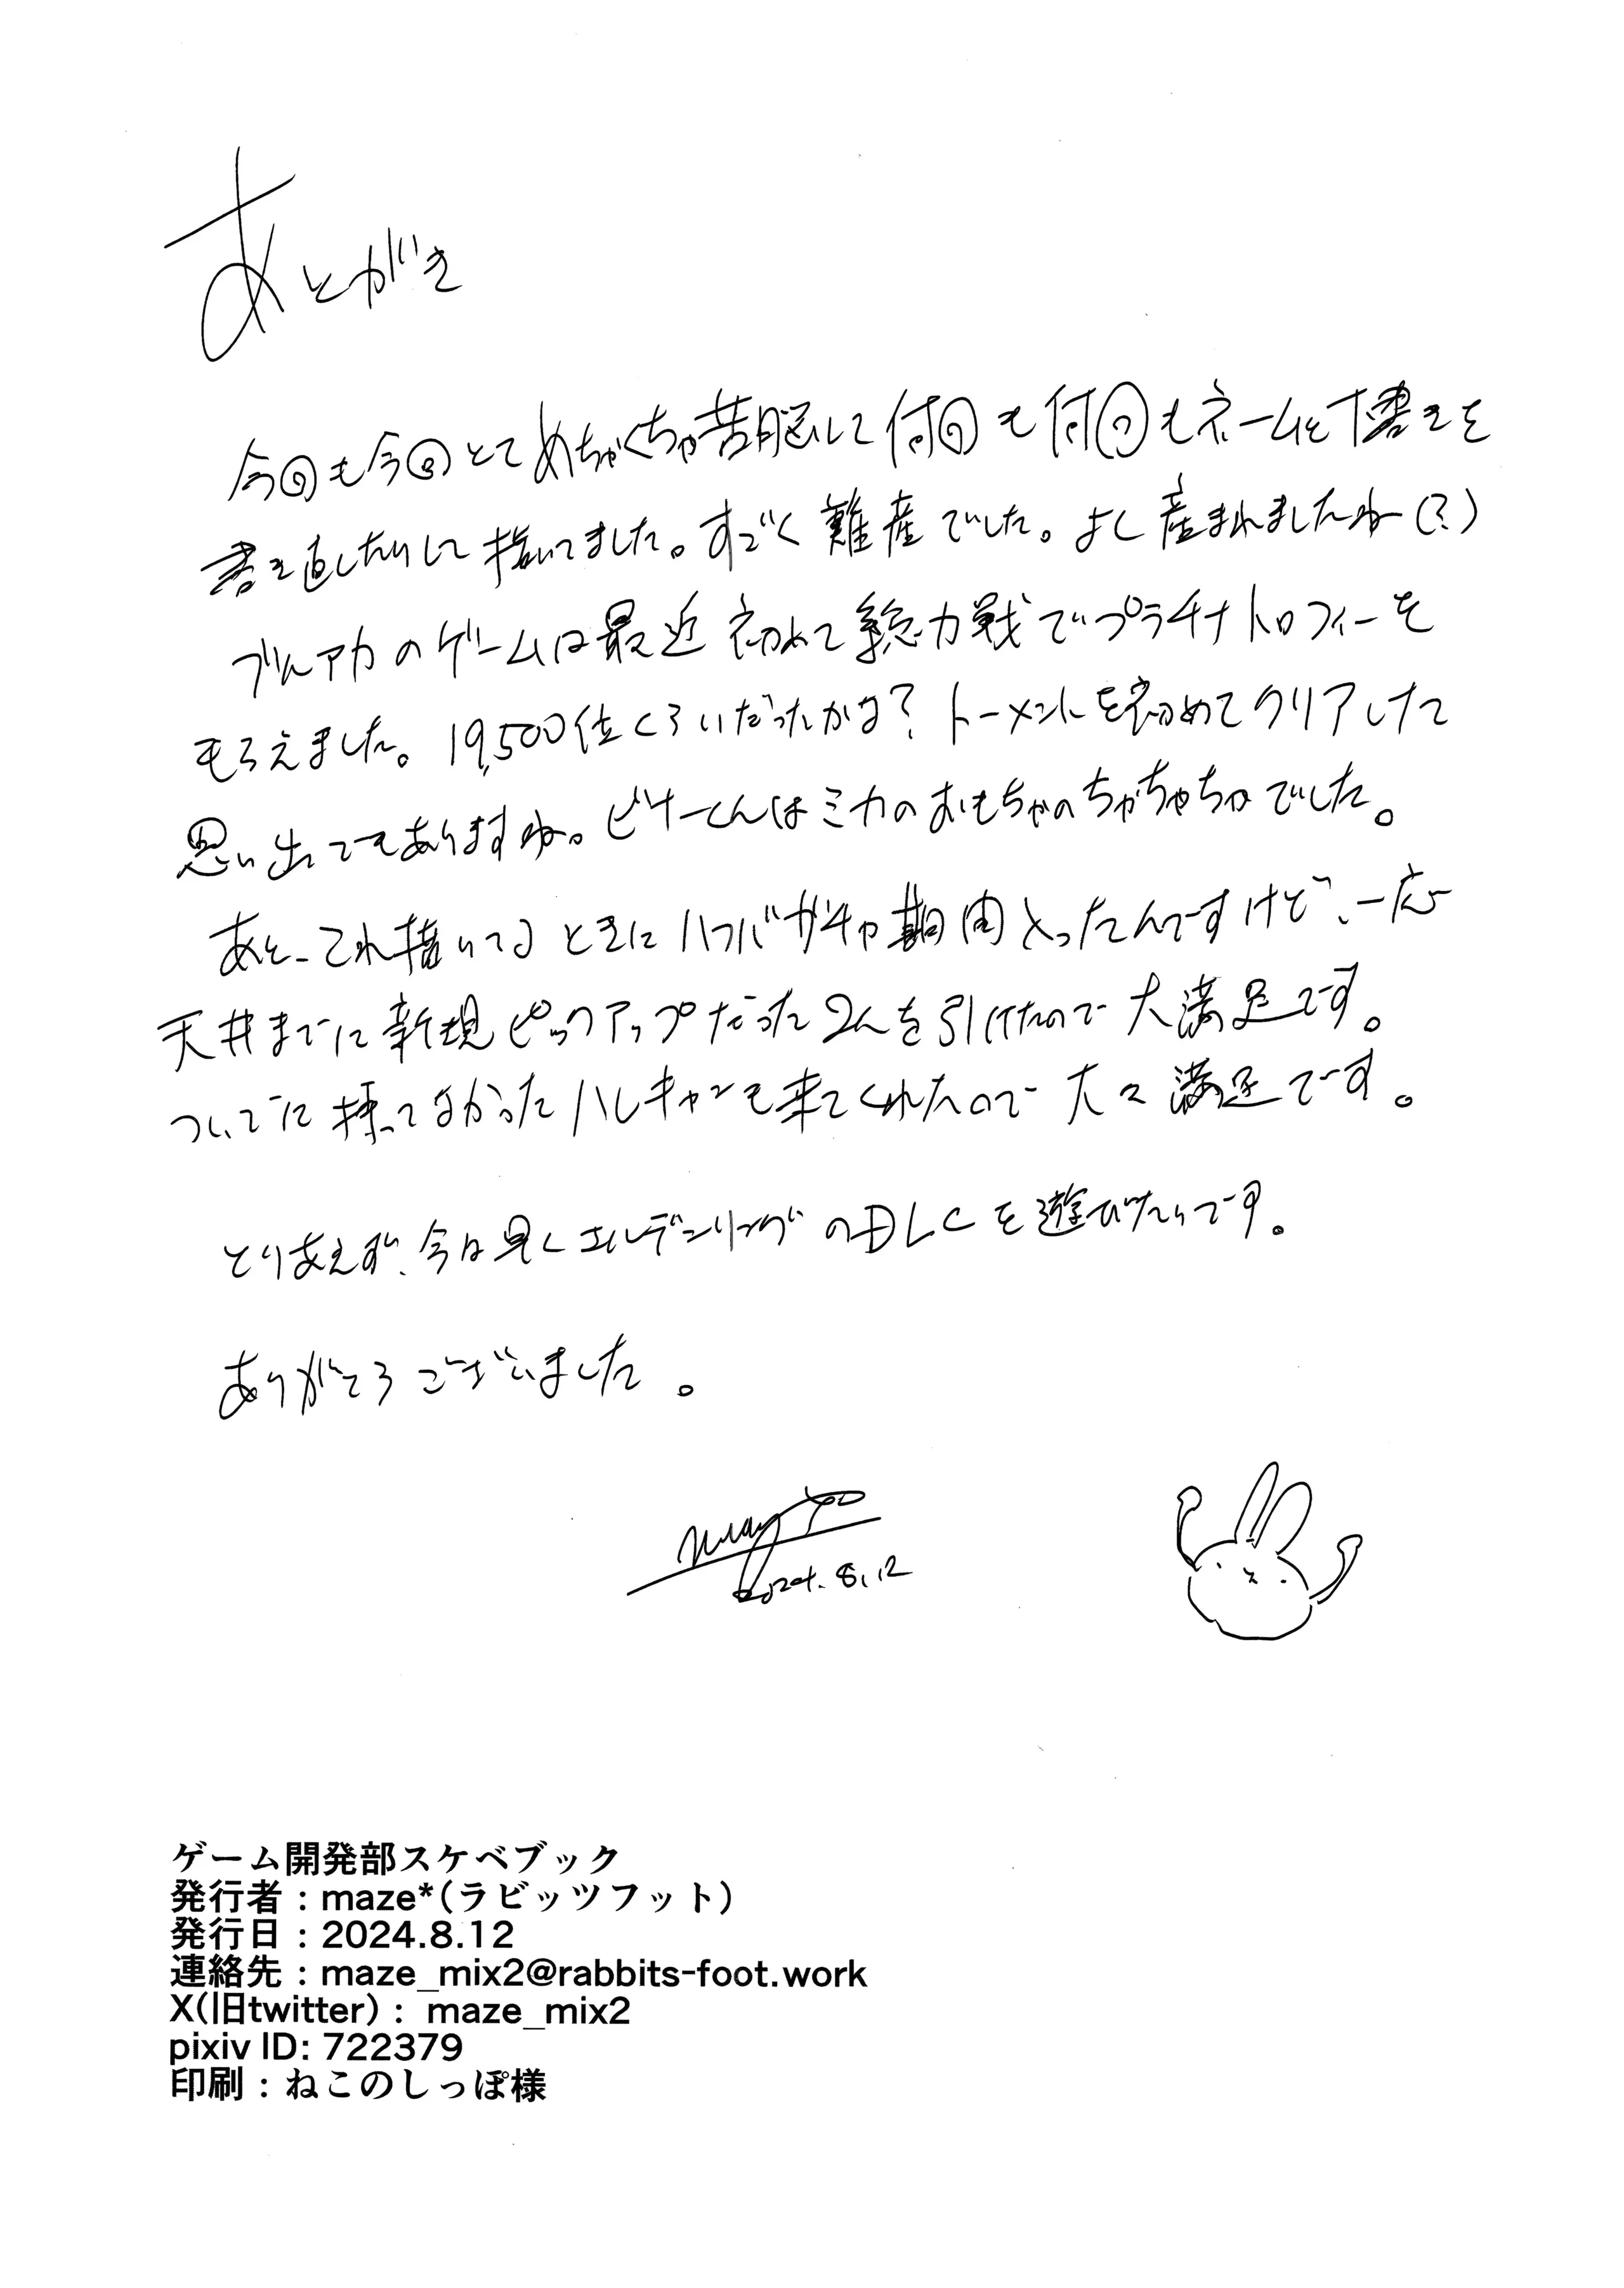 あとがき
今回も今回とてめちゃくちゃ苦脳して何回も何回もネームと下書きを
書き直したりして描いてました。すごく難産でした。よく産まれましたねー(?)
ブルアカのゲームは最近初めて総力戦でプラチナトロフィーを
もらえました。19,500位くらいだったかな?トーメントを初めてクリアしたて
思い出でもありますね。ビナーくんはミカのおもちゃのちゃちゃちゃでした。
あと、これ描いてるときにハフバガチャ期間入ったんですけど、一応
天井までに新規ピックアップだった2人を引けたので大満足です。
ついでに持ってなかったハレキャンも来てくれたので大々満足です。
とりあえず、今は早くエルデンリングのDLCを遊びたいです。
ありがとうございました。
2024.8.12
ゲーム開発部スケベブック
発行者:maze*(ラビッツフット)
発行日:2024.8.12
連絡先:maze_mix2@rabbits-foot.work
X(旧twitter): maze_mix2
pixiv ID: 722379
印刷:ねこのしっぽ様